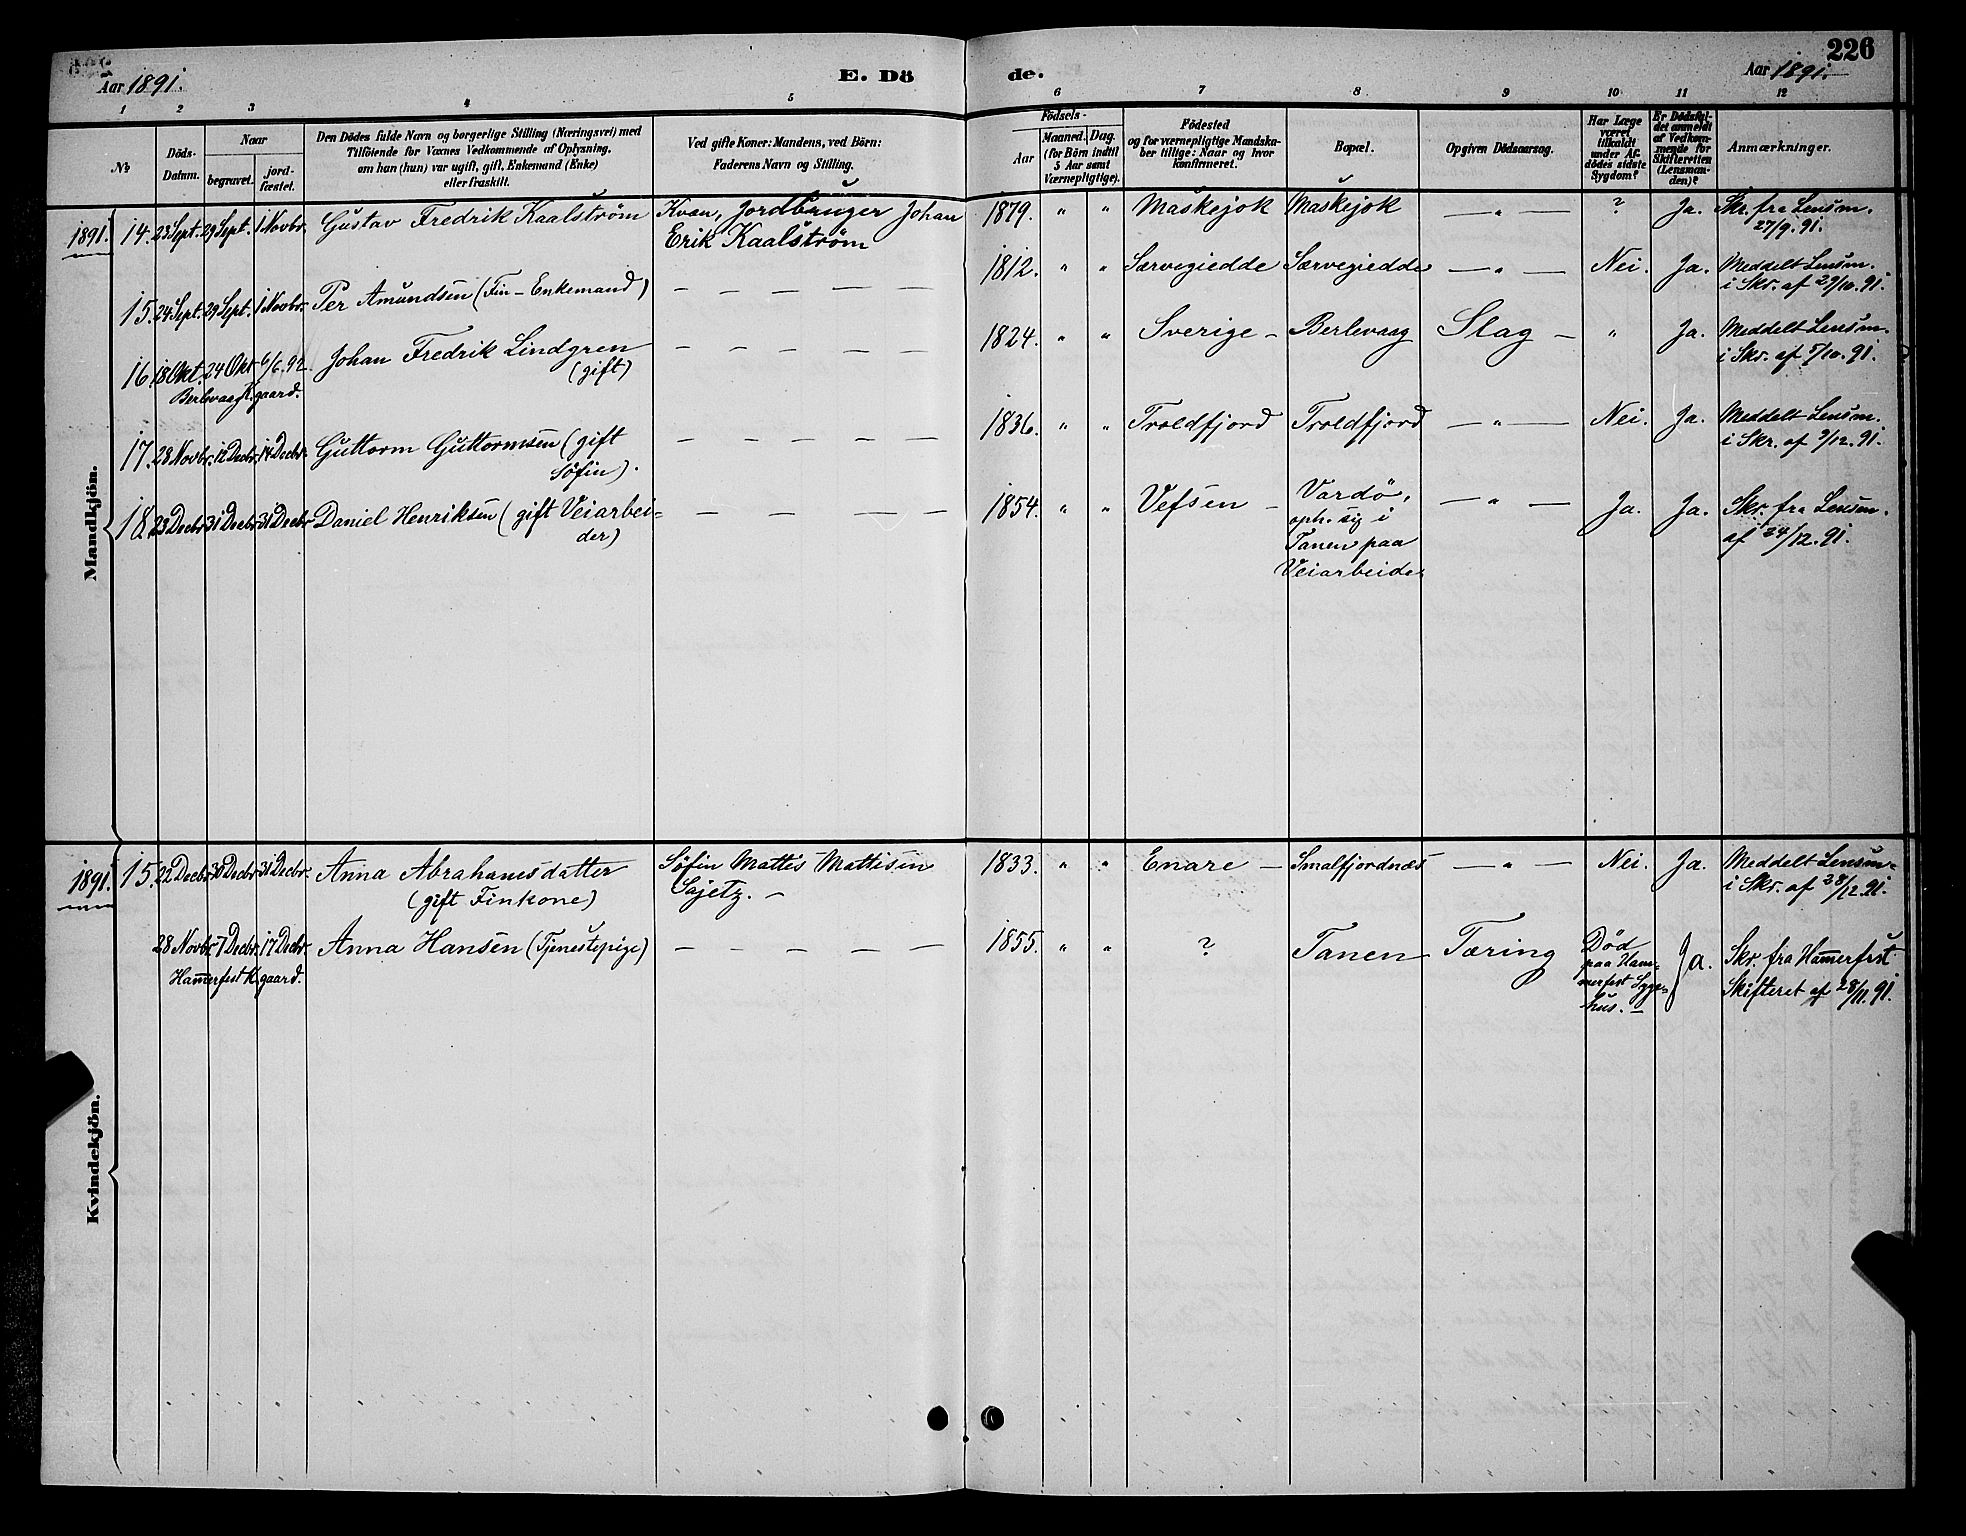 Aar 1891.
E. Dö
de.
Aar 1891.
226
1 2 3 4 5 6 7 8 9 10 11 12
No
Döds-
Datum.
Naar
begravet.
jord-
fæstet.
Den Dödes fulde Navn og borgerlige Stilling (Næringsvei) med
Tilföiende for Voxnes Vedkommende af Oplysning,
om han (hun) var ugift, gift, Enkemand (Enke)
eller fraskilt.
Ved gifte Koner: Mandens, ved Börn:
Faderens Navn og Stilling.
Födsels-
Aar
Maaned. Dag.
(for Börn indtil
5 Aar samt
Værnepligtige).
Födested
og for værnepligtige Mandska-
ber tillige: Naar og hvor
konfirmeret.
Bopæl.
Opgiven Dödsaarsag.
Har Læge
været
tilkaldt
under Af-
dödes sidste
Sygdom?
Er Dödsfal-
det anmeldt
af Vedkom-
mende for
Skifteretten
(Lensman-
den)?
Anmærkninger.
Mandkjön.
1891. 14. 23 Sept. 29 Sept. 1 Novbr. Gustav Fredrik Kaalström Kvæn, Jordbruger Johan 1879. " " Maskejok Maskejok — " — ? Ja. Skr. fra Lensm.
Erik Kaalström 27/9. 91.
15. 24 Sept. 29 Sept. 1 Novbr. Per Amundsen (Fin - Enkemand) — — — — — 1812. " " Særvegiedde Særvegiedde — " — Nei. Ja. Meddelt Lensm.
i Skr. af 29/10. 91.
16. 18 Okt. 24 Okt. 6/6. 92. Johan Fredrik Lindgren — — — — — 1824. " " Sverige — Berlevaag Slag — " Ja. Meddelt Lensm.
Berlevaag K.gaard. (gift) i Skr. af 5/10. 91.
17. 28 Novbr. 12 Decbr. 14 Decbr. Guttorm Guttormsen (gift — — — — — 1836. " " Troldfjord Troldfjord — " — Nei. Ja. Meddelt Lensm.
Söfin). i Skr. af 9/12. 91.
18. 23 Decbr. 31 Decbr. 31 Decbr. Daniel Henriksen (gift Veiarbei- — — — — — 1854. " " Vefsen — Vardö, — " — Ja. Ja. Skr. fra Lensm.
der) oph. sig i af 24/12. 91.
Tanen paa
Veiarbeide.
Kvindekjön.
1891. 15. 22 Decbr. 30 Decbr. 31 Decbr. Anna Abrahamsdatter Söfin Mattis Mattisen 1833. " " Enare — Smalfjordnæs — " — Nei. Ja. Meddelt Lensm.
(gift Finkone) Sajetz. — i Skr. af 28/12. 91.
28 Novbr. 7 Decbr. 17 Decbr. Anna Hansen (Tjenestepige) — — — — — 1855. " " ? Tanen Tæring Död Ja. Skr. fra Hamerfest
Hamerfest K.gaard. paa Ham-
merfest Syge-
hus. —
Skifteret af 28/11. 91.